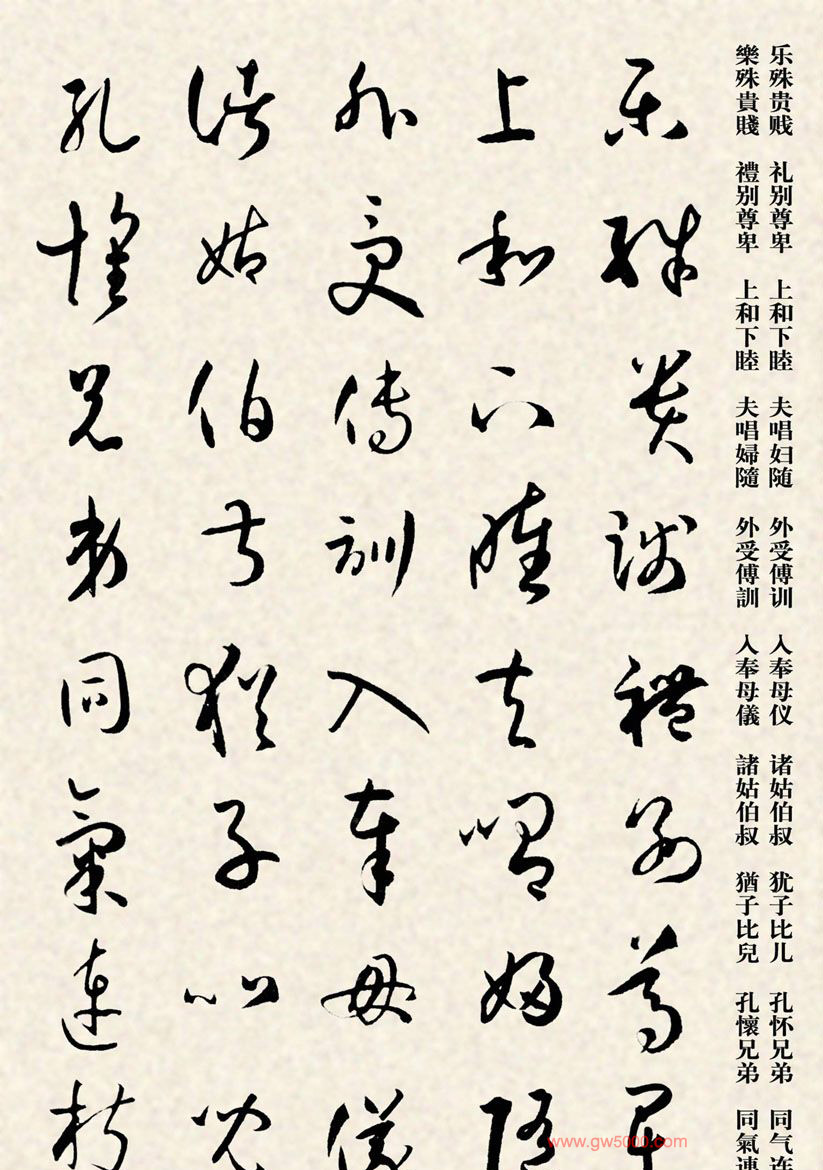 乐殊贵贱 礼别尊卑 上和下睦 夫唱妇随 外受傅训 入奉母仪 诸姑伯叔 犹子比儿 孔怀兄弟 同气连
樂殊貴賤 禮别尊卑 上和下睦 夫唱婦隨 外受傅訓 入奉母儀 諸姑伯叔 猶子比兒 孔懷兄弟 同氣連
乐殊貴賤禮别尊卑
上和下睦夫唱婦隨
外受傅訓入奉母儀
諸姑伯叔猶子比兒
孔懷兄弟同氣連枝
www.gw5000.com